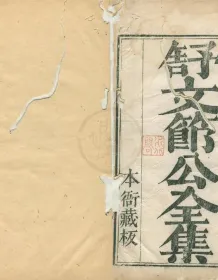 舒文節公全集
本衙藏板